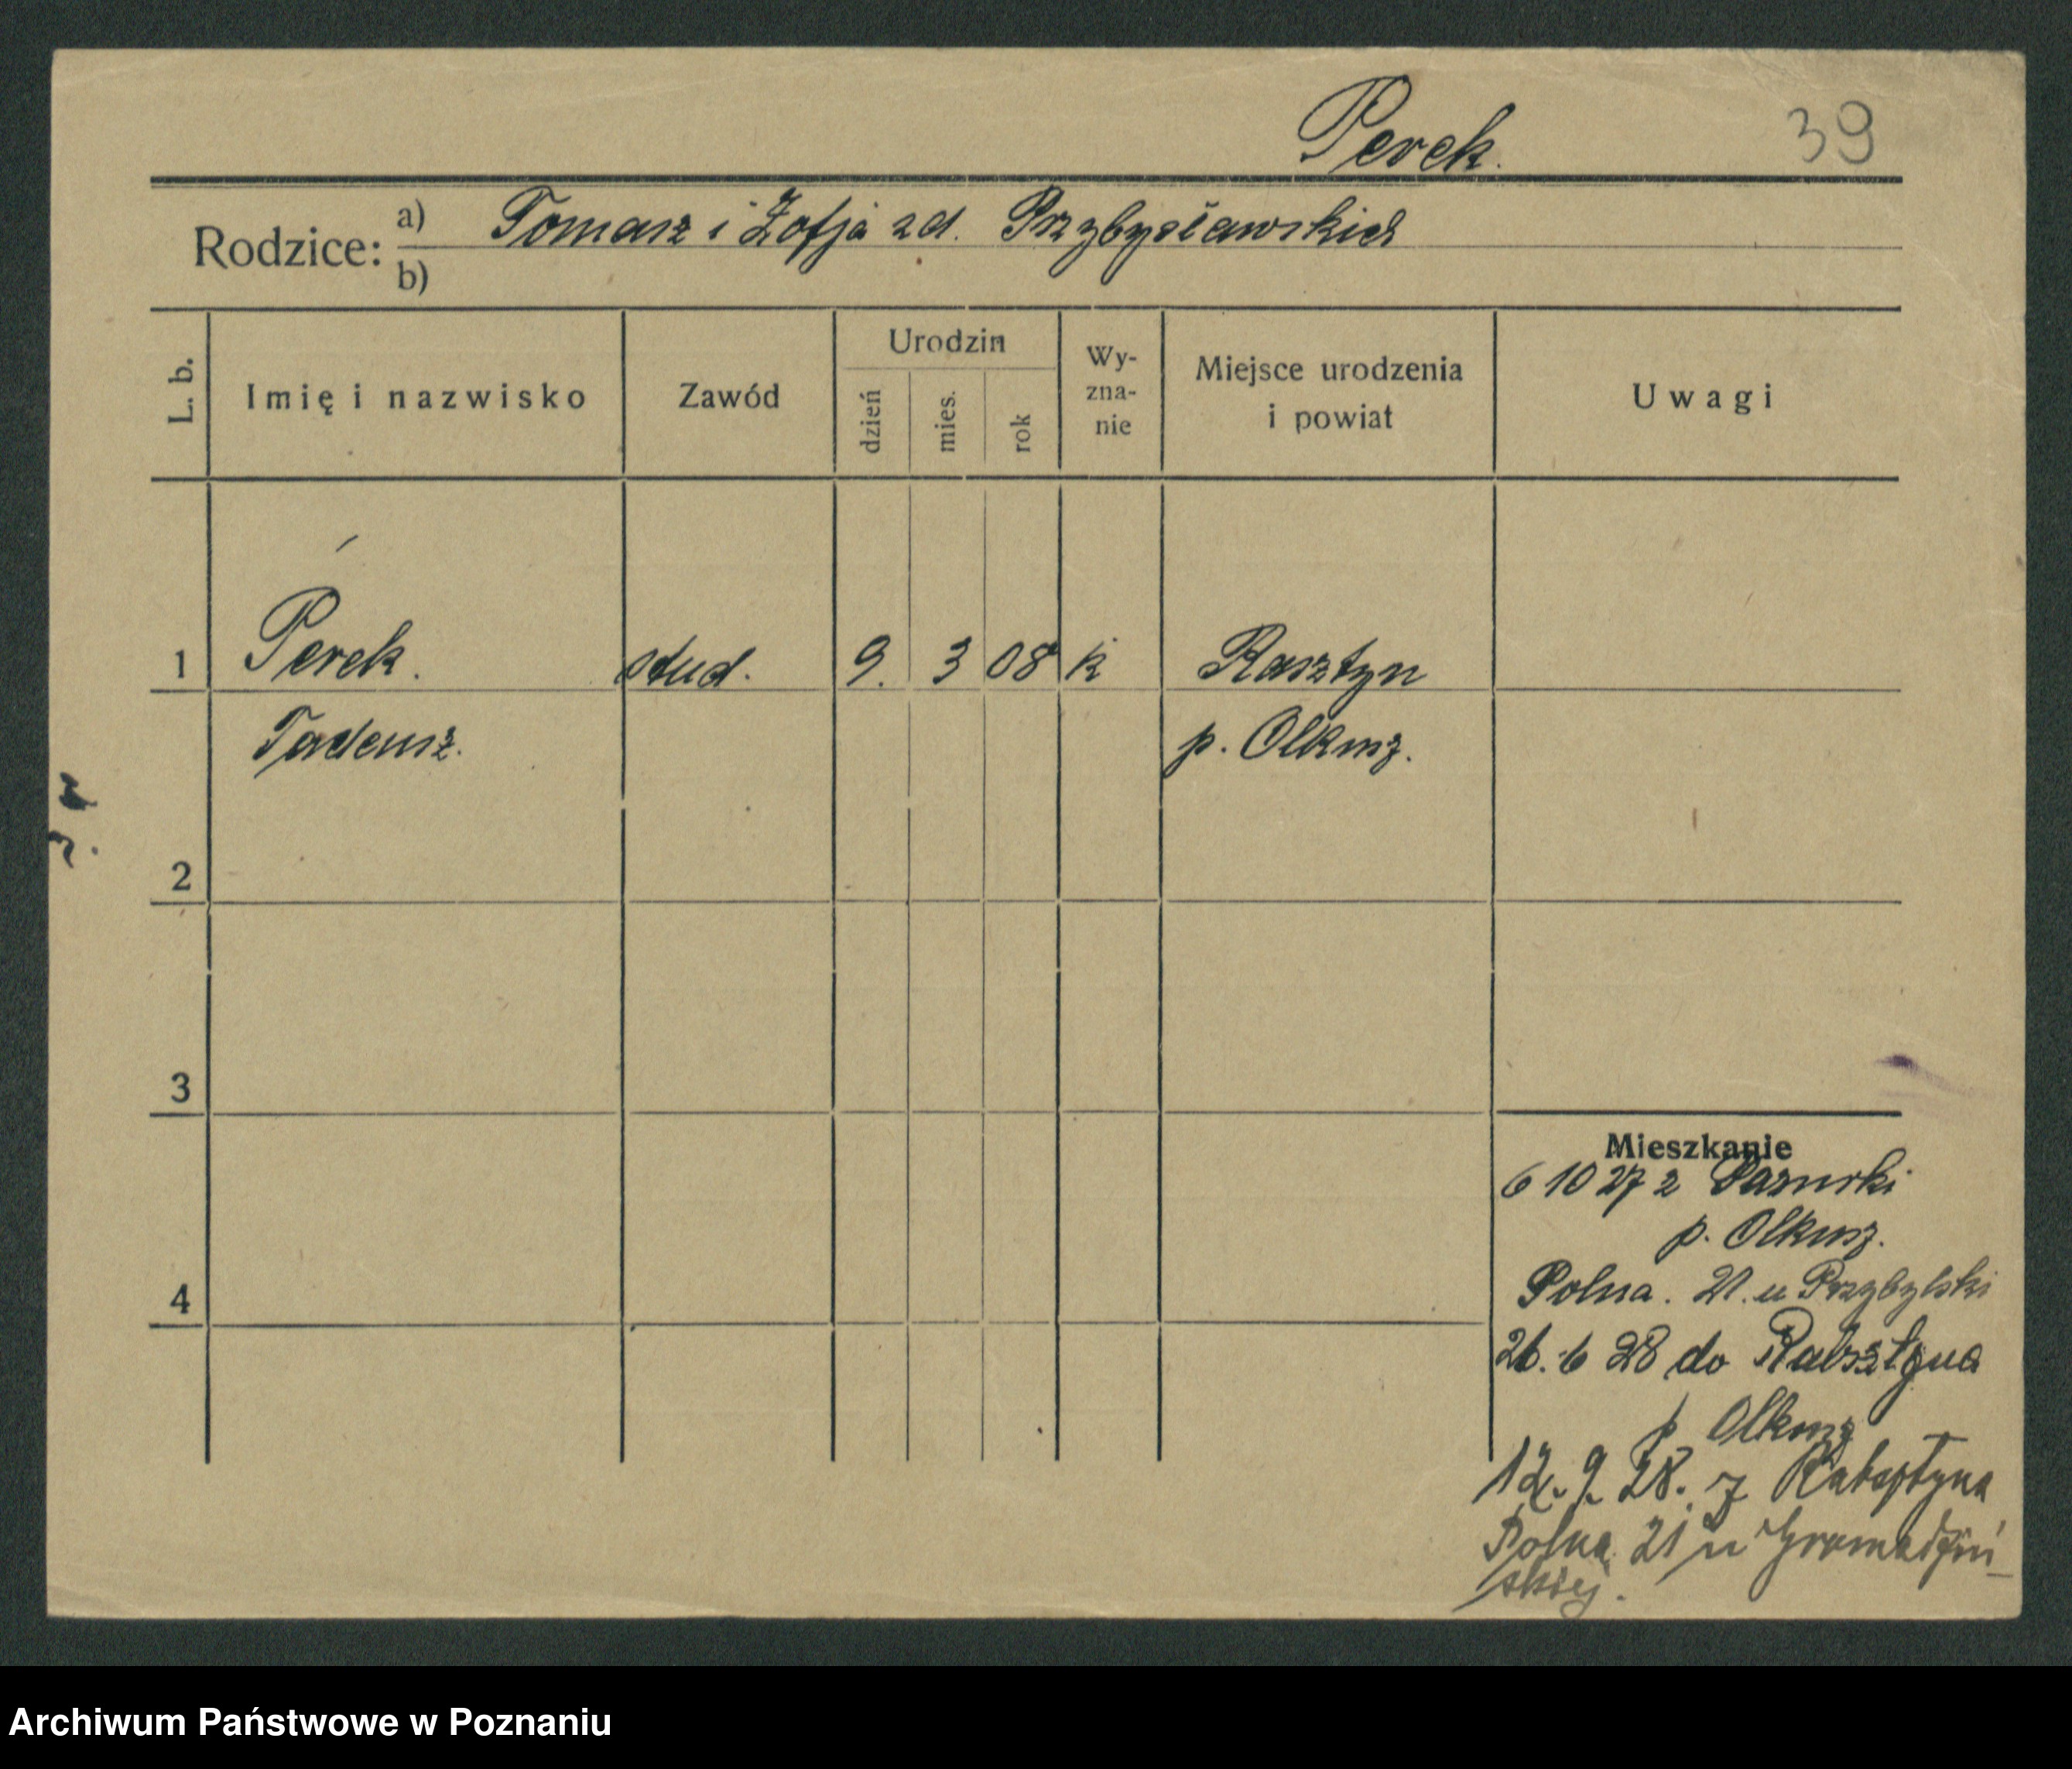 Perek. 39
Rodzice: a) Tomasz i Zofja zd. Przybysławskich
b)
L. b. Imię i nazwisko Zawód Urodzin dzień mies. rok Wy-zna-nie Miejsce urodzenia i powiat Uwagi
1 Perek. stud. 9. 3 08 k Rasztyn
Tadeusz. p. Olkusz.
2
3
Mieszkanie
6 10 27 z Pazurki
p. Olkusz.
4 Polna. 21. u Przybylski
26. 6 28 do Rabsztyna
p Olkusz
12. 9. 28. z Rabsztyna
Polna 21 u Gromadziń-
skiej.
Archiwum Państwowe w Poznaniu